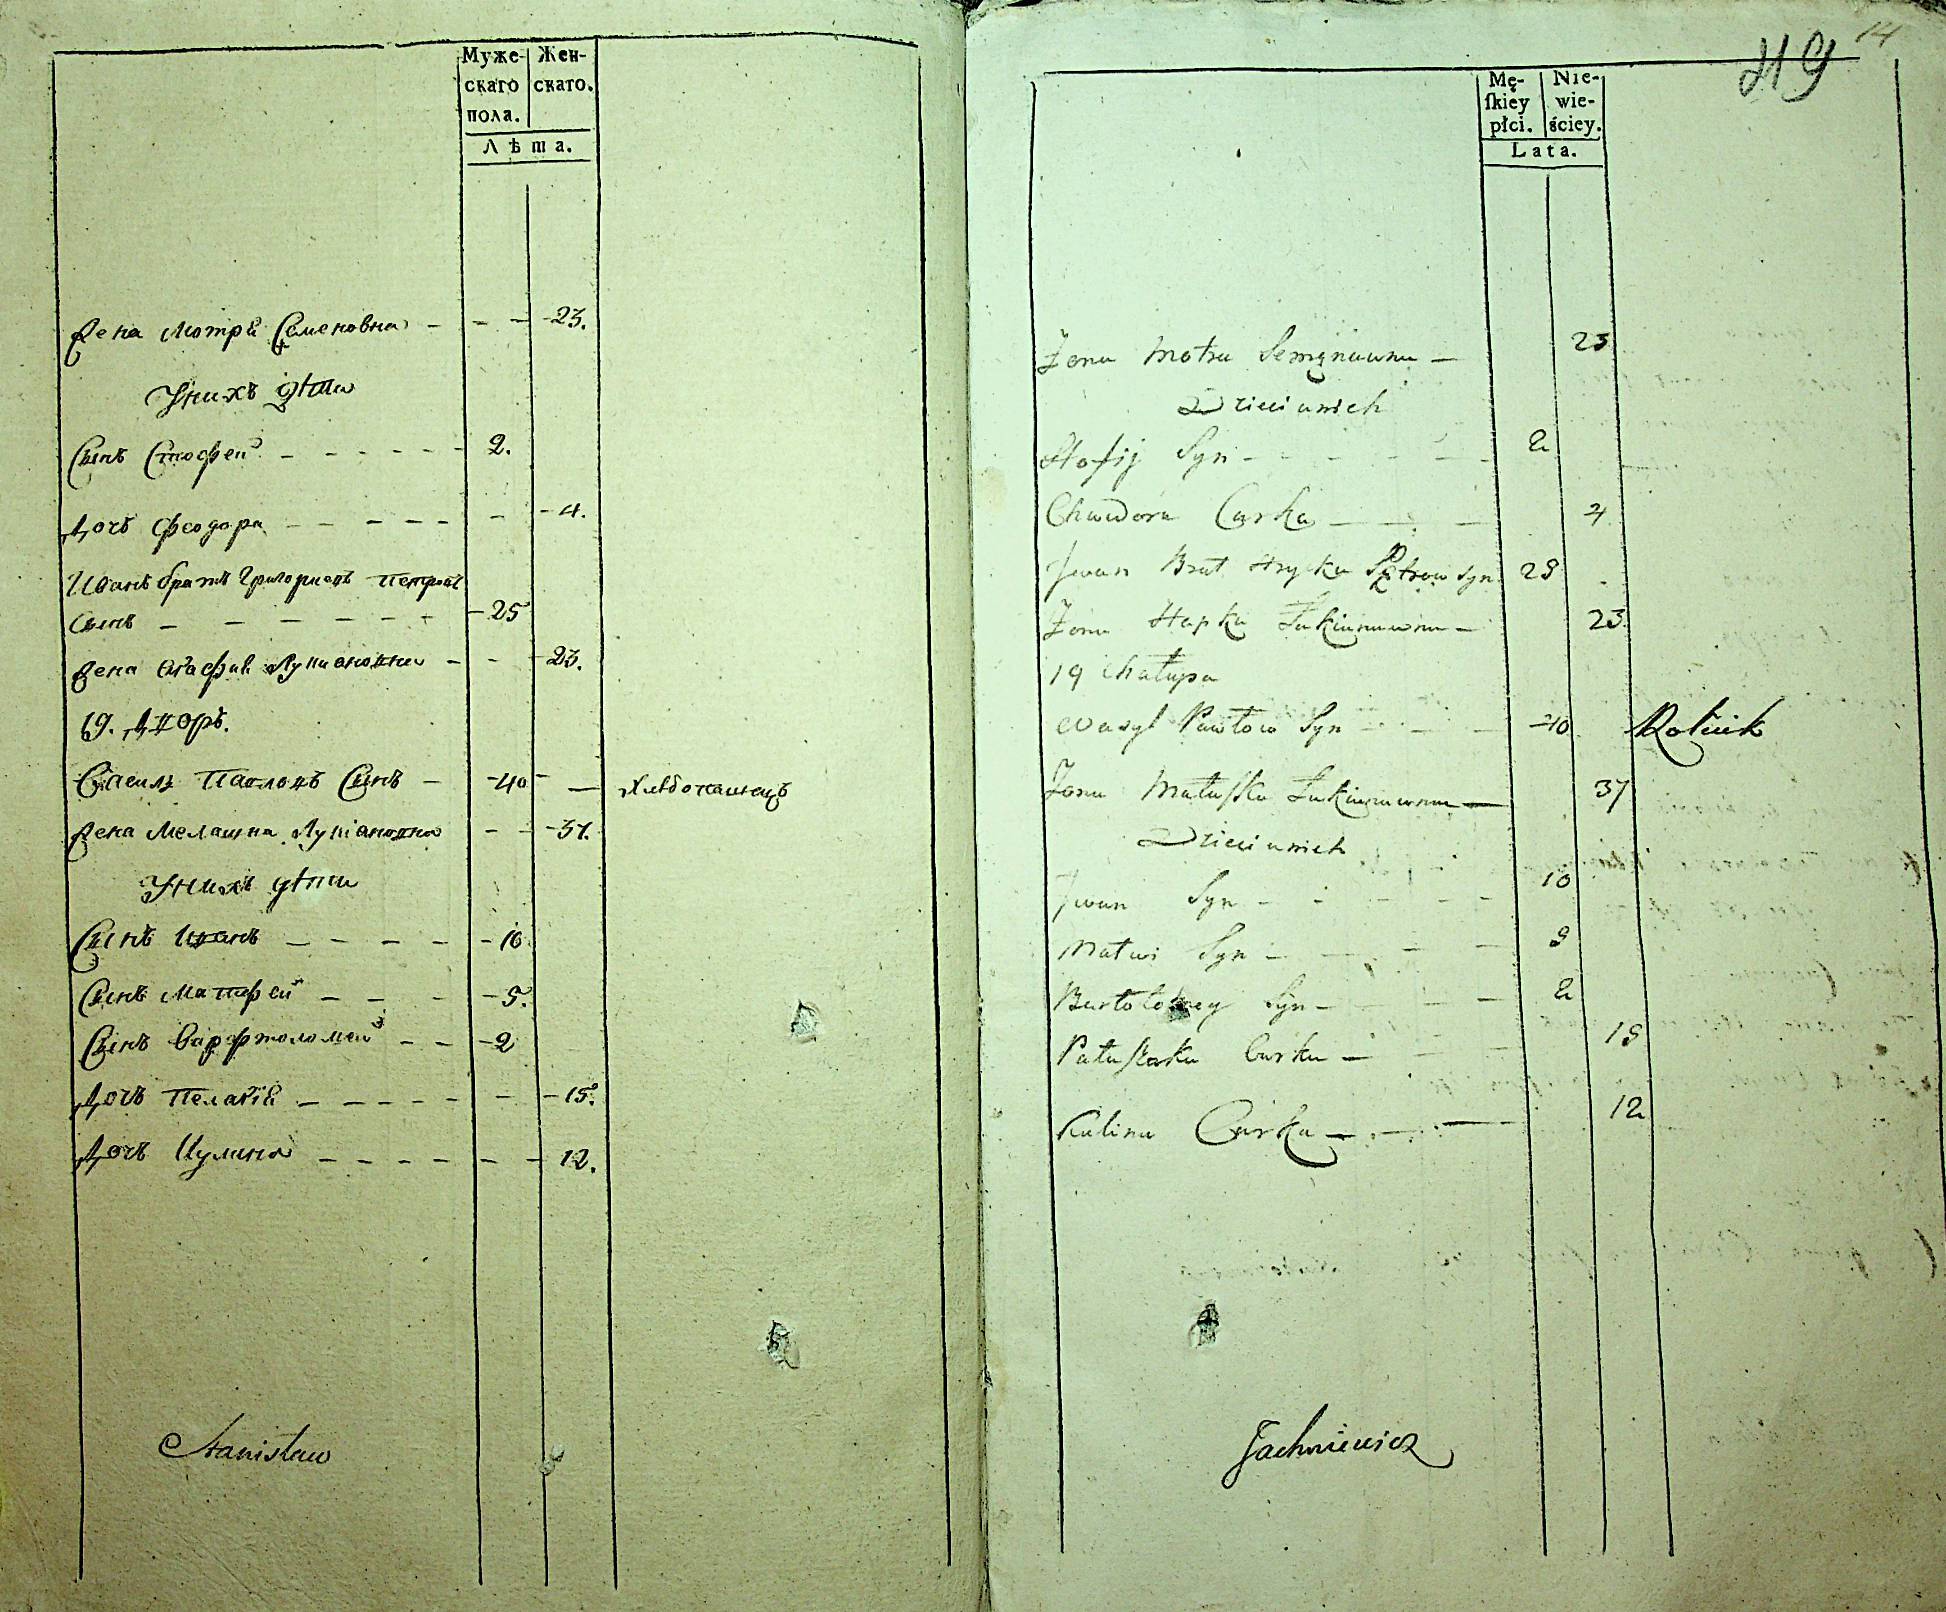 Муже-
скаго
пола.
Жен-
скаго.
Лѣта.
Жена Мотря Семеновна - - - 23.
У нихъ дѣти
Сынъ Стофей - - - - - 2.
Дочь Феодора - - - - - 4.
Иванъ братъ Григориевъ Петровъ
Сынъ - - - - - 25
Жена Агафия Лукиановна - - 23.
19. Дворъ.
Василь Павловъ Сынъ - 40 - Хлебопашецъ
Жена Мелашка Лукіановна - - 37.
У нихъ дѣти
Сынъ Иванъ - - - - 10.
Сынъ Матфей - - - 5.
Сынъ Варфтоломей - - 2
Дочь Пелагія - - - - - 15.
Дочь Кулина - - - - - 12.
Stanisław
14
Mę-
skiey
płci.
Nie-
wie-
ściey.
Lata.
Żona Motra Semenowna - 23
Dzieci u nich
Stofij Syn - - - - - 2
Chwedora Curka - - - 4
Jwan Brat Hryćka Petrow Syn 25
Żona Hapka Łukianowna - 23.
19 Chałupa
Wasyl Pawłow Syn - - - 40 Rolnik
Żona Małaszka Łukianowna - 37
Dzieci u nich
Jwan Syn - - - - - 10
Matwi Syn - - - 5
Bartołomey Syn - - - 2
Curka - - - 15
Kulina Curka - - - 12
Jachniewicz